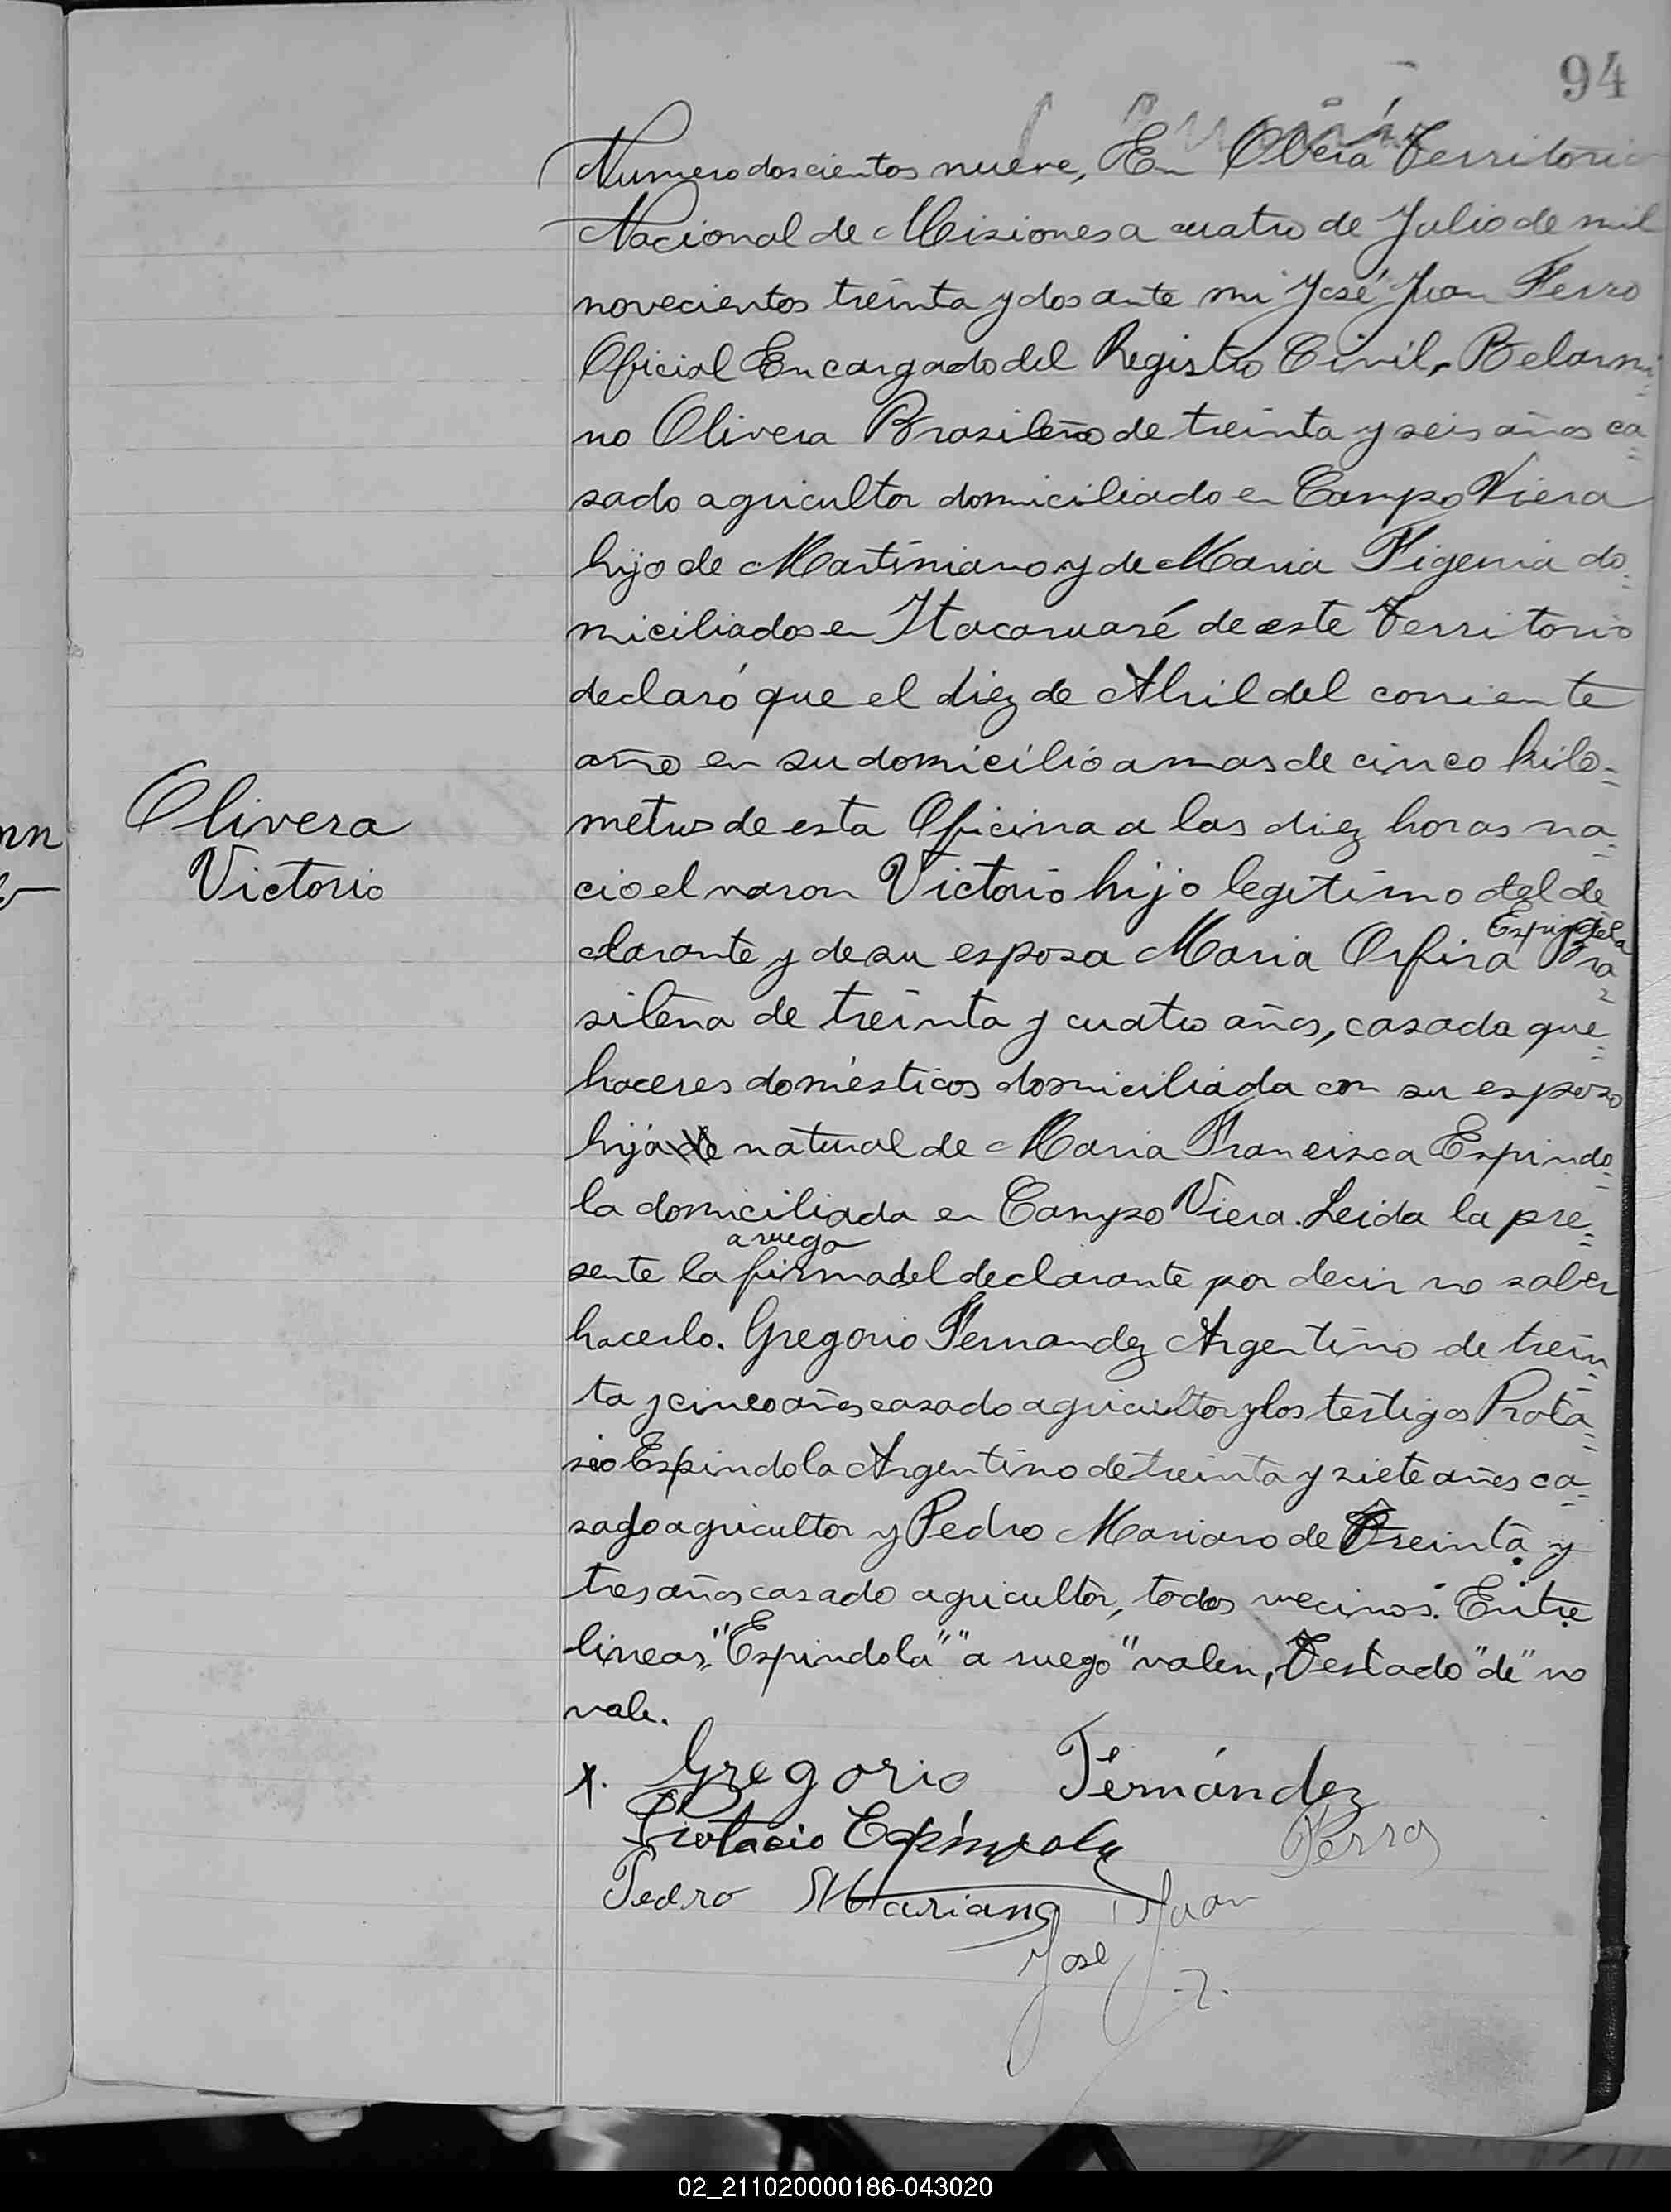 94
Numero doscientos nueve, En Oberá Territorio
Nacional de Misiones a cuatro de Julio de mil
novecientos treinta y dos ante mi José Juan Ferro
Oficial Encargado del Registro Civil, Belarmi=
no Olivera Brasileño de treinta y seis años ca=
sado agricultor domiciliado en Campo Viera
hijo de Martiniano y de Maria Figenia do=
miciliados en Itacaruaré de este Territorio
declaró que el diez de Abril del corriente
año en su domicilio a mas de cinco kilo=
Olivera
metros de esta Oficina a las diez horas na=
Victorio
cio el varon Victorio hijo legitimo del de=
Espindola
clarante y de su esposa Maria Orfira Bra=
sileña de treinta y cuatro años, casada que=
haceres domésticos domiciliada con su esposo
hija de natural de Maria Francisca Espindo=
la domiciliada en Campo Viera. Leida la pre=
a ruego
sente la firma del declarante por decir no saber
hacerlo. Gregorio Fernandez Argentino de trein=
ta y cinco años casado agricultor y los testigos Prota=
sio Espindola Argentino de treinta y siete años ca=
sado agricultor y Pedro Mariano de treinta y
tres años casado agricultor, todos vecinos. Entre
lineas, "Espindola" "a ruego" valen, Testado "de" no
vale.
x. Gregorio Fernández
Protacio Espindola
Ferro
Pedro Mariano
Juan
José
02_211020000186-043020